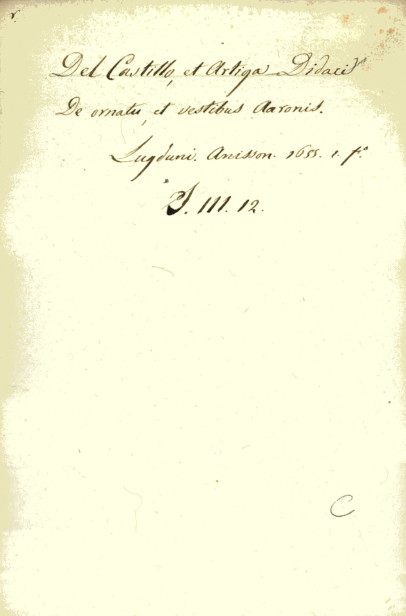 Del Castillo, et Artiga Didaci
De ornatu, et vestibus Aaronis.
Lugduni. Anisson. 1655. 1. fº
J. III. 12.
C